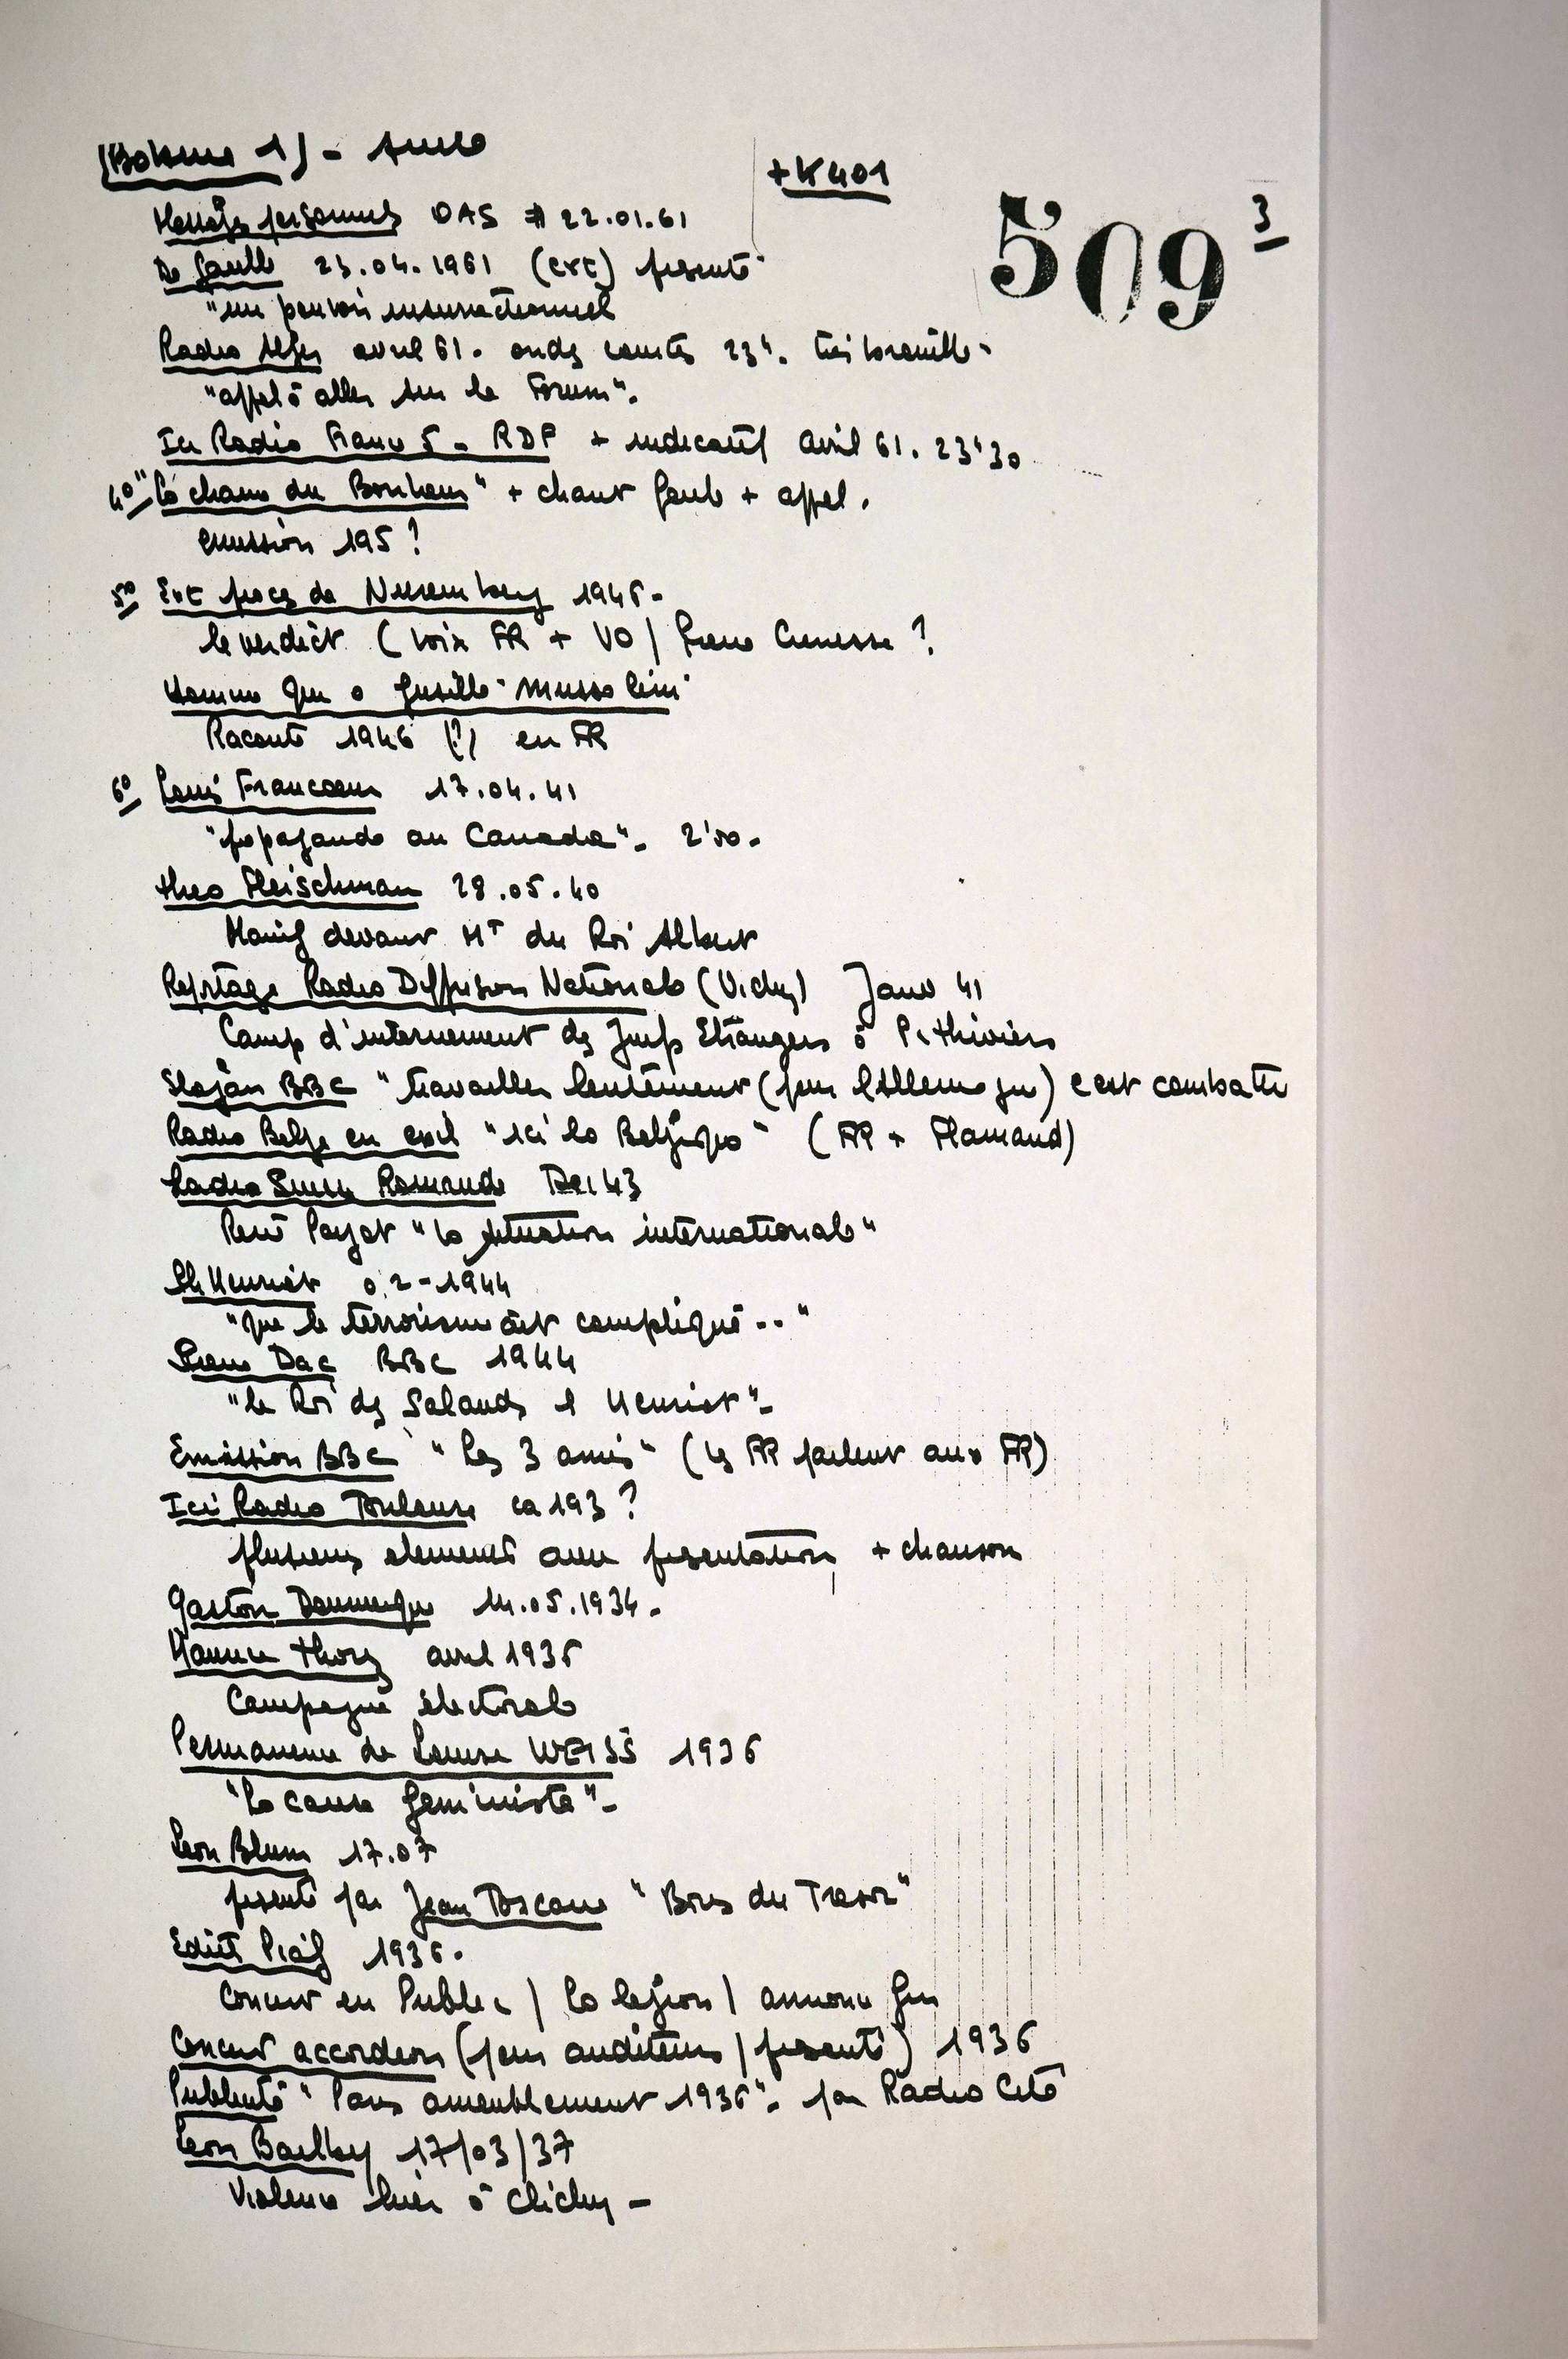 +K401
509 3
Messages personnels OAS # 22.01.61
De Gaulle 23.04.1961 (ext) présenté
"un pouvoir insurrectionnel
Radio Alger avril 61. ondes courtes 23h. très brouillé.
"appel à aller sur le Forum".
Ici Radio France 5 - RDF + indicatif avril 61. 23'30
4° "La chaine du Bonheur" + chant + appel.
émission 195?
5° Ext procès de Nuremberg 1946.
le verdict (voix FR + VO /
Homme qui a fusillé Mussolini
Raconté 1946 (?) en FR
6° Louis Francoeur 17.04.41
"propagande au Canada". 2'50.
Theo Fleischman 28.05.40
devant Mt du Roi Albert
Reportage Radio Diffusion Nationale (Vichy) Janv 41
Camp d'internement des Juifs Etrangers à Pithiviers
Slogan BBC "travailler lentement (pour l'Allemagne) c'est combattre
Radio Belge en exil "ici la Belgique" (FR + Flamand)
Radio Suisse Romande Dec 43
René Payot "la situation internationale"
Ph Henriot 02-1944
"que le terrorisme est compliqué.."
Pierre Dac BBC 1944
"le Roi des Salauds Henriot".
Emission BBC "Les 3 amis" (les FR parlent aux FR)
Ici Radio Toulouse ca 193?
plusieurs elements avec presentation + chanson
Gaston Doumergue 14.05.1934.
Maurice Thorez avril 1936
Campagne électorale
Permanence de Louise WEISS 1936
"la cause feministe".
Leon Blum 17.07
présenté par Jean Toscane "Bons du Tresor"
Edith Piaf 1936.
Concert en Public / la légion / annonce fin
Concert accordéon (pour auditeurs / présenté) 1936
Publicité "Paris ameublement 1936". par Radio Cité
Leon Bailby 17/03/37
Violence hier à Clichy -